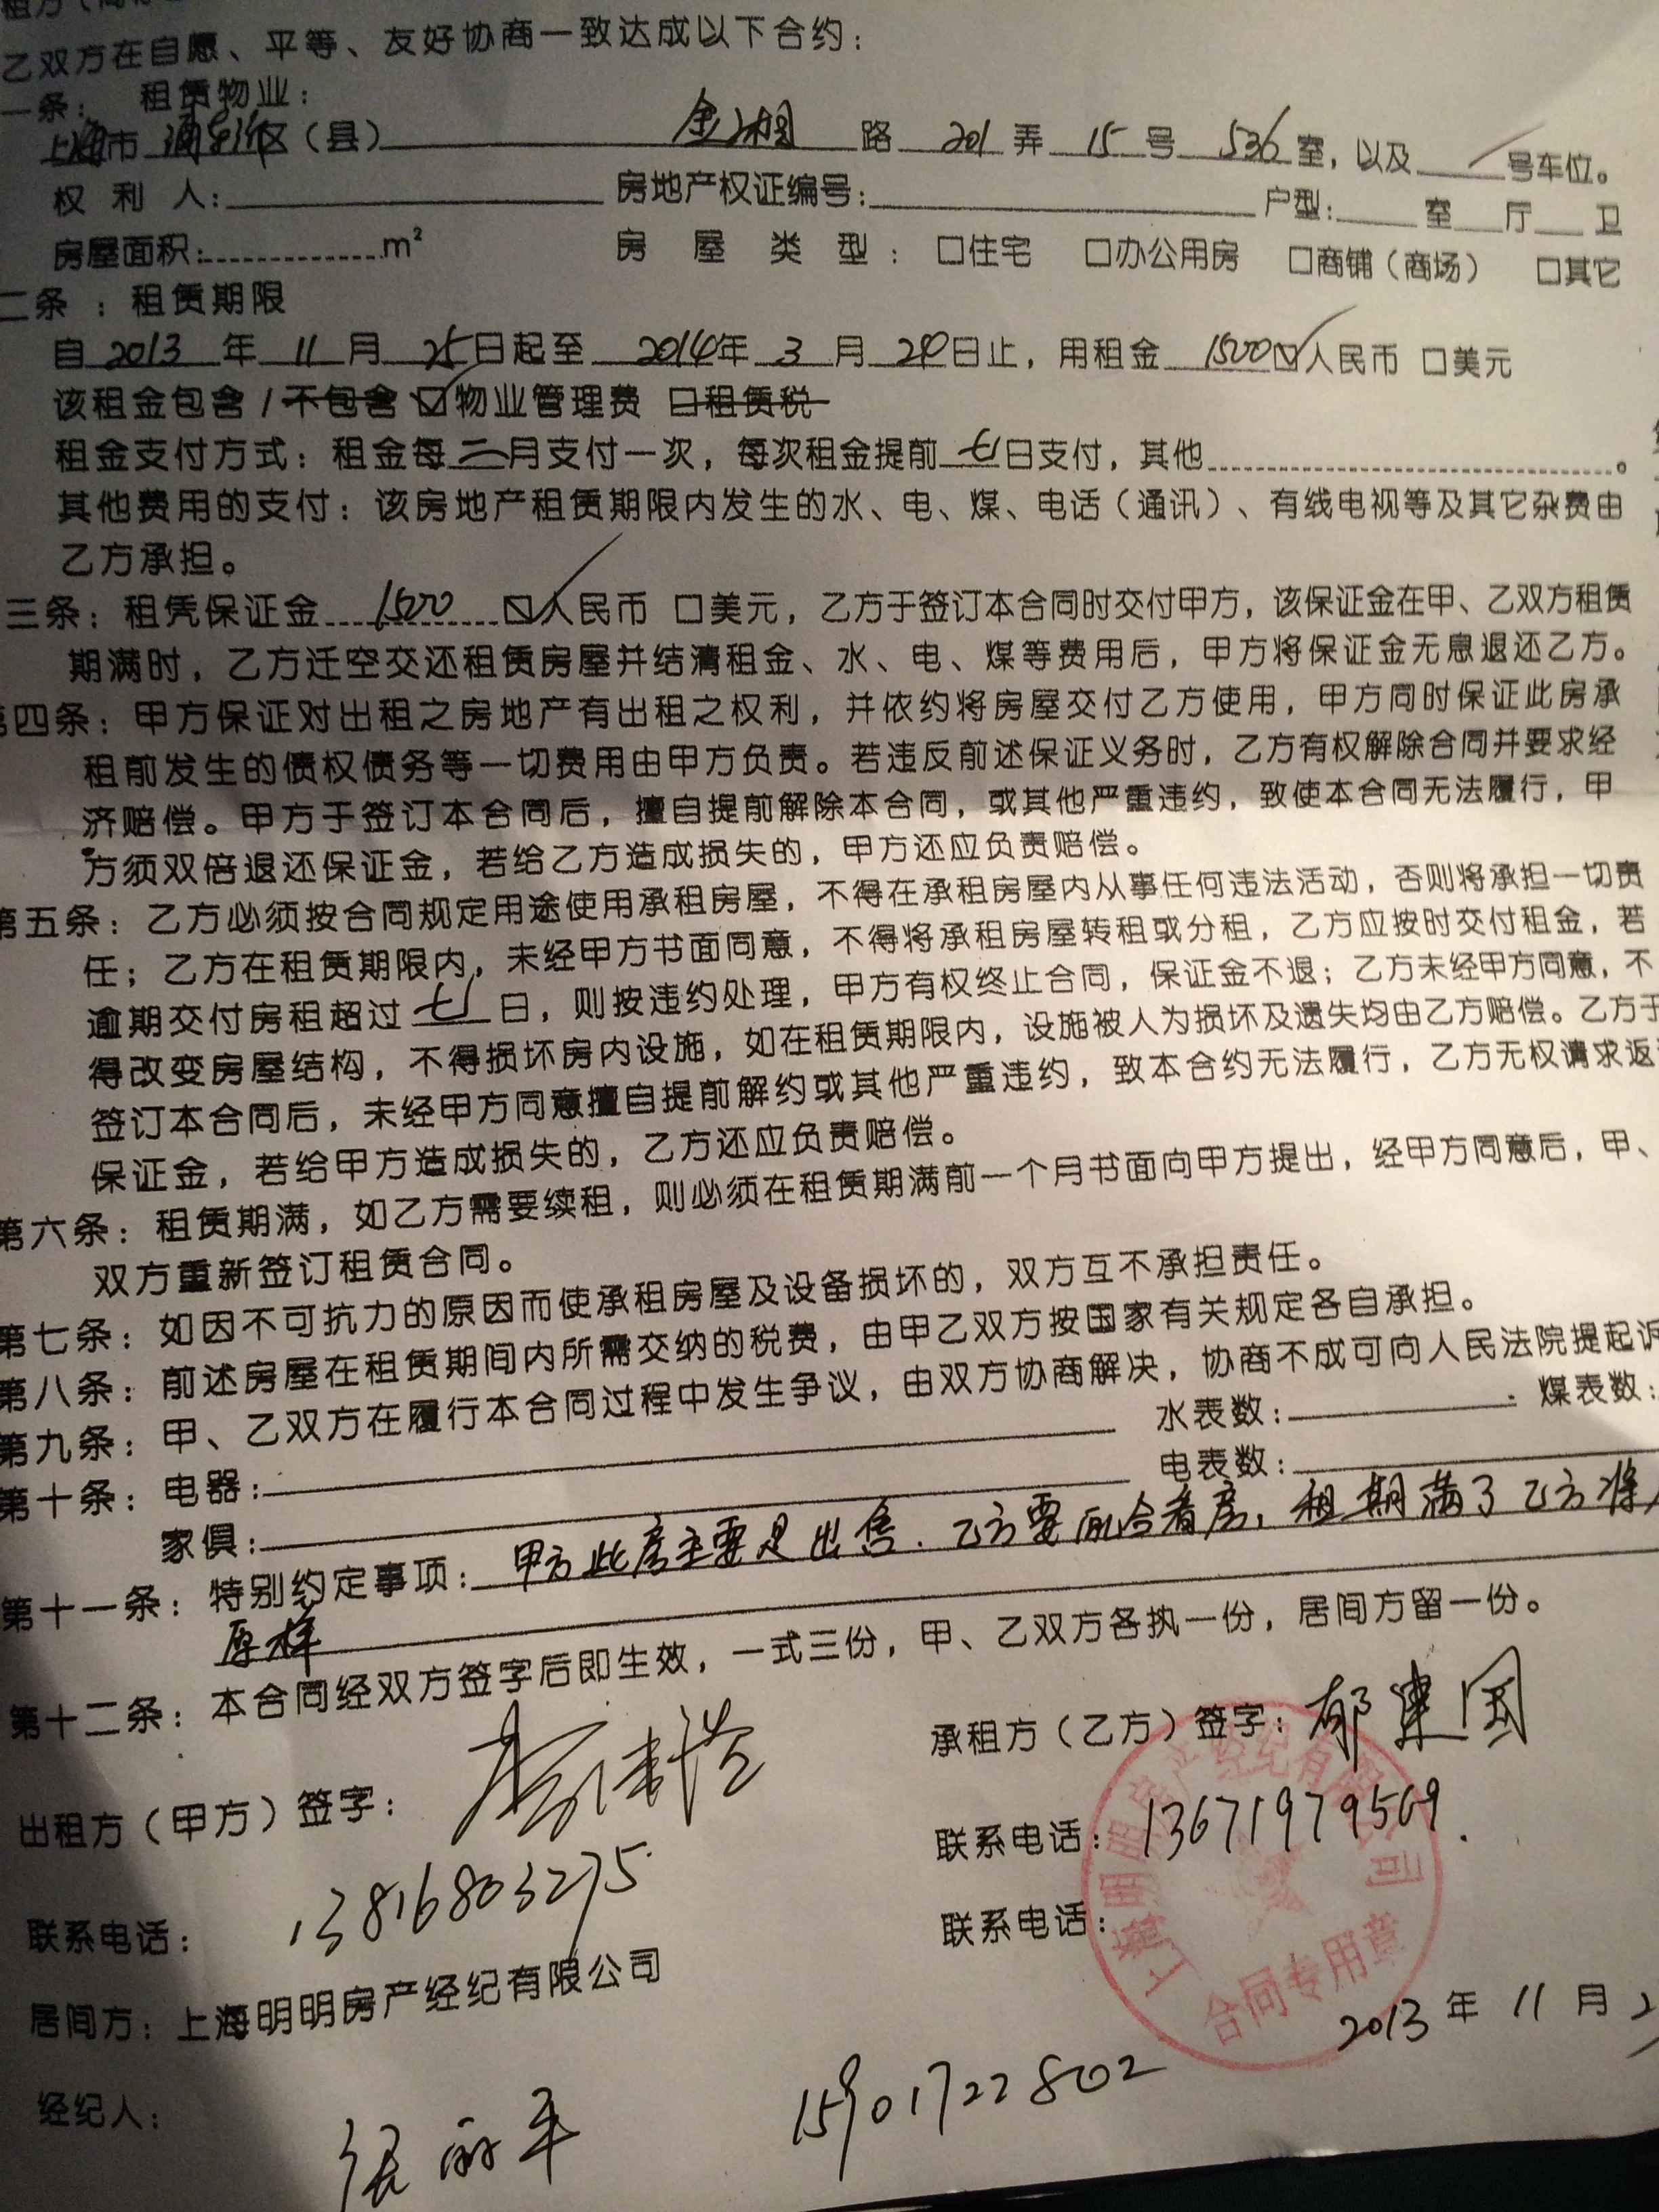 乙双方在自愿、平等、友好协商一致达成以下合约：
一条： 租赁物业：
上海市 浦东新区（县） 金湘 路 201 弄 15 号 536 室，以及 / 号车位。
权利人： 房地产权证编号： 户型： 室 厅 卫
房屋面积： m² 房屋类型：□住宅 □办公用房 □商铺（商场） □其它
二条：租赁期限
自 2013 年 11 月 25 日起至 2014年 3 月 24日止，用租金 1500 ☑人民币 □美元
该租金包含/不包含 ☑物业管理费 □租赁税
租金支付方式：租金每 二 月支付一次，每次租金提前 七 日支付，其他 。
其他费用的支付：该房地产租赁期限内发生的水、电、煤、电话（通讯）、有线电视等及其它杂费由
乙方承担。
三条：租凭保证金 1500 ☑人民币 □美元，乙方于签订本合同时交付甲方，该保证金在甲、乙双方租赁
期满时，乙方迁空交还租赁房屋并结清租金、水、电、煤等费用后，甲方将保证金无息退还乙方。
第四条：甲方保证对出租之房地产有出租之权利，并依约将房屋交付乙方使用，甲方同时保证此房承
租前发生的债权债务等一切费用由甲方负责。若违反前述保证义务时，乙方有权解除合同并要求经
济赔偿。甲方于签订本合同后，擅自提前解除本合同，或其他严重违约，致使本合同无法履行，甲
方须双倍退还保证金，若给乙方造成损失的，甲方还应负责赔偿。
第五条：乙方必须按合同规定用途使用承租房屋，不得在承租房屋内从事任何违法活动，否则将承担一切责
任；乙方在租赁期限内，未经甲方书面同意，不得将承租房屋转租或分租，乙方应按时交付租金，若
逾期交付房租超过 七 日，则按违约处理，甲方有权终止合同，保证金不退；乙方未经甲方同意，不
得改变房屋结构，不得损坏房内设施，如在租赁期限内，设施被人为损坏及遗失均由乙方赔偿。乙方于
签订本合同后，未经甲方同意擅自提前解约或其他严重违约，致本合约无法履行，乙方无权请求返
保证金，若给甲方造成损失的，乙方还应负责赔偿。
第六条：租赁期满，如乙方需要续租，则必须在租赁期满前一个月书面向甲方提出，经甲方同意后，甲、
双方重新签订租赁合同。
第七条：如因不可抗力的原因而使承租房屋及设备损坏的，双方互不承担责任。
第八条：前述房屋在租赁期间内所需交纳的税费，由甲乙双方按国家有关规定各自承担。
第九条：甲、乙双方在履行本合同过程中发生争议，由双方协商解决，协商不成可向人民法院提起诉
第十条：电器： 水表数： 煤表数：
家俱： 电表数：
第十一条：特别约定事项：甲方此房主要是出售．乙方要配合看房，租期满了乙方将
原样
第十二条：本合同经双方签字后即生效，一式三份，甲、乙双方各执一份，居间方留一份。
出租方（甲方）签字：
承租方（乙方）签字：郁建国
联系电话：13816803275
联系电话：13671979569
联系电话：
居间方：上海明明房产经纪有限公司
上海明明房产经纪有限公司
合同专用章
2013 年 11 月 2
经纪人：张丽平 15901722802